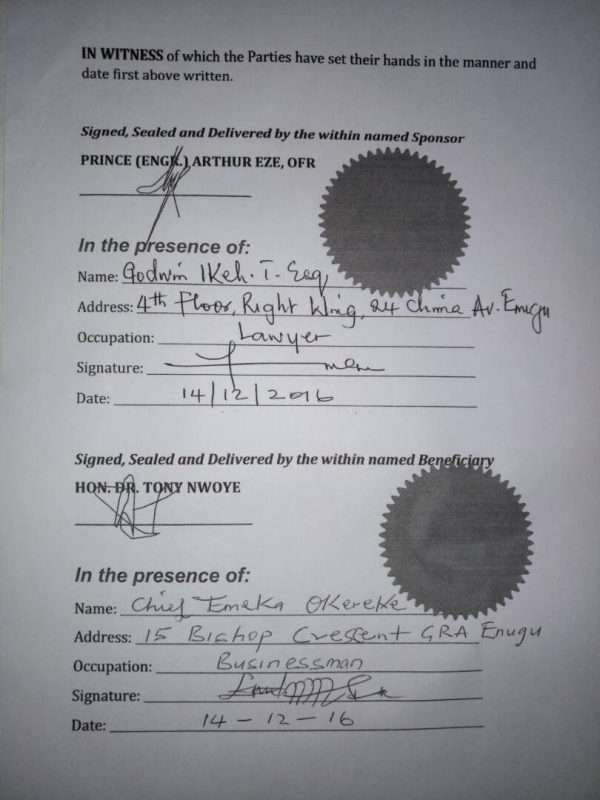 IN WITNESS of which the Parties have set their hands in the manner and
date first above written.
Signed, Sealed and Delivered by the within named Sponsor
PRINCE (ENGR.) ARTHUR EZE, OFR
In the presence of:
Name: Godwin Ikeh. T. Esq
Address: 4th Floor, Right Wing, 24 Chime Av. Enugu
Occupation: Lawyer
Signature:
Date: 14/12/2016
Signed, Sealed and Delivered by the within named Beneficiary
HON. DR. TONY NWOYE
In the presence of:
Name: Chief Emeka Okereke
Address: 15 Bishop Crescent GRA Enugu
Occupation: Businessman
Signature:
Date: 14 - 12 - 16